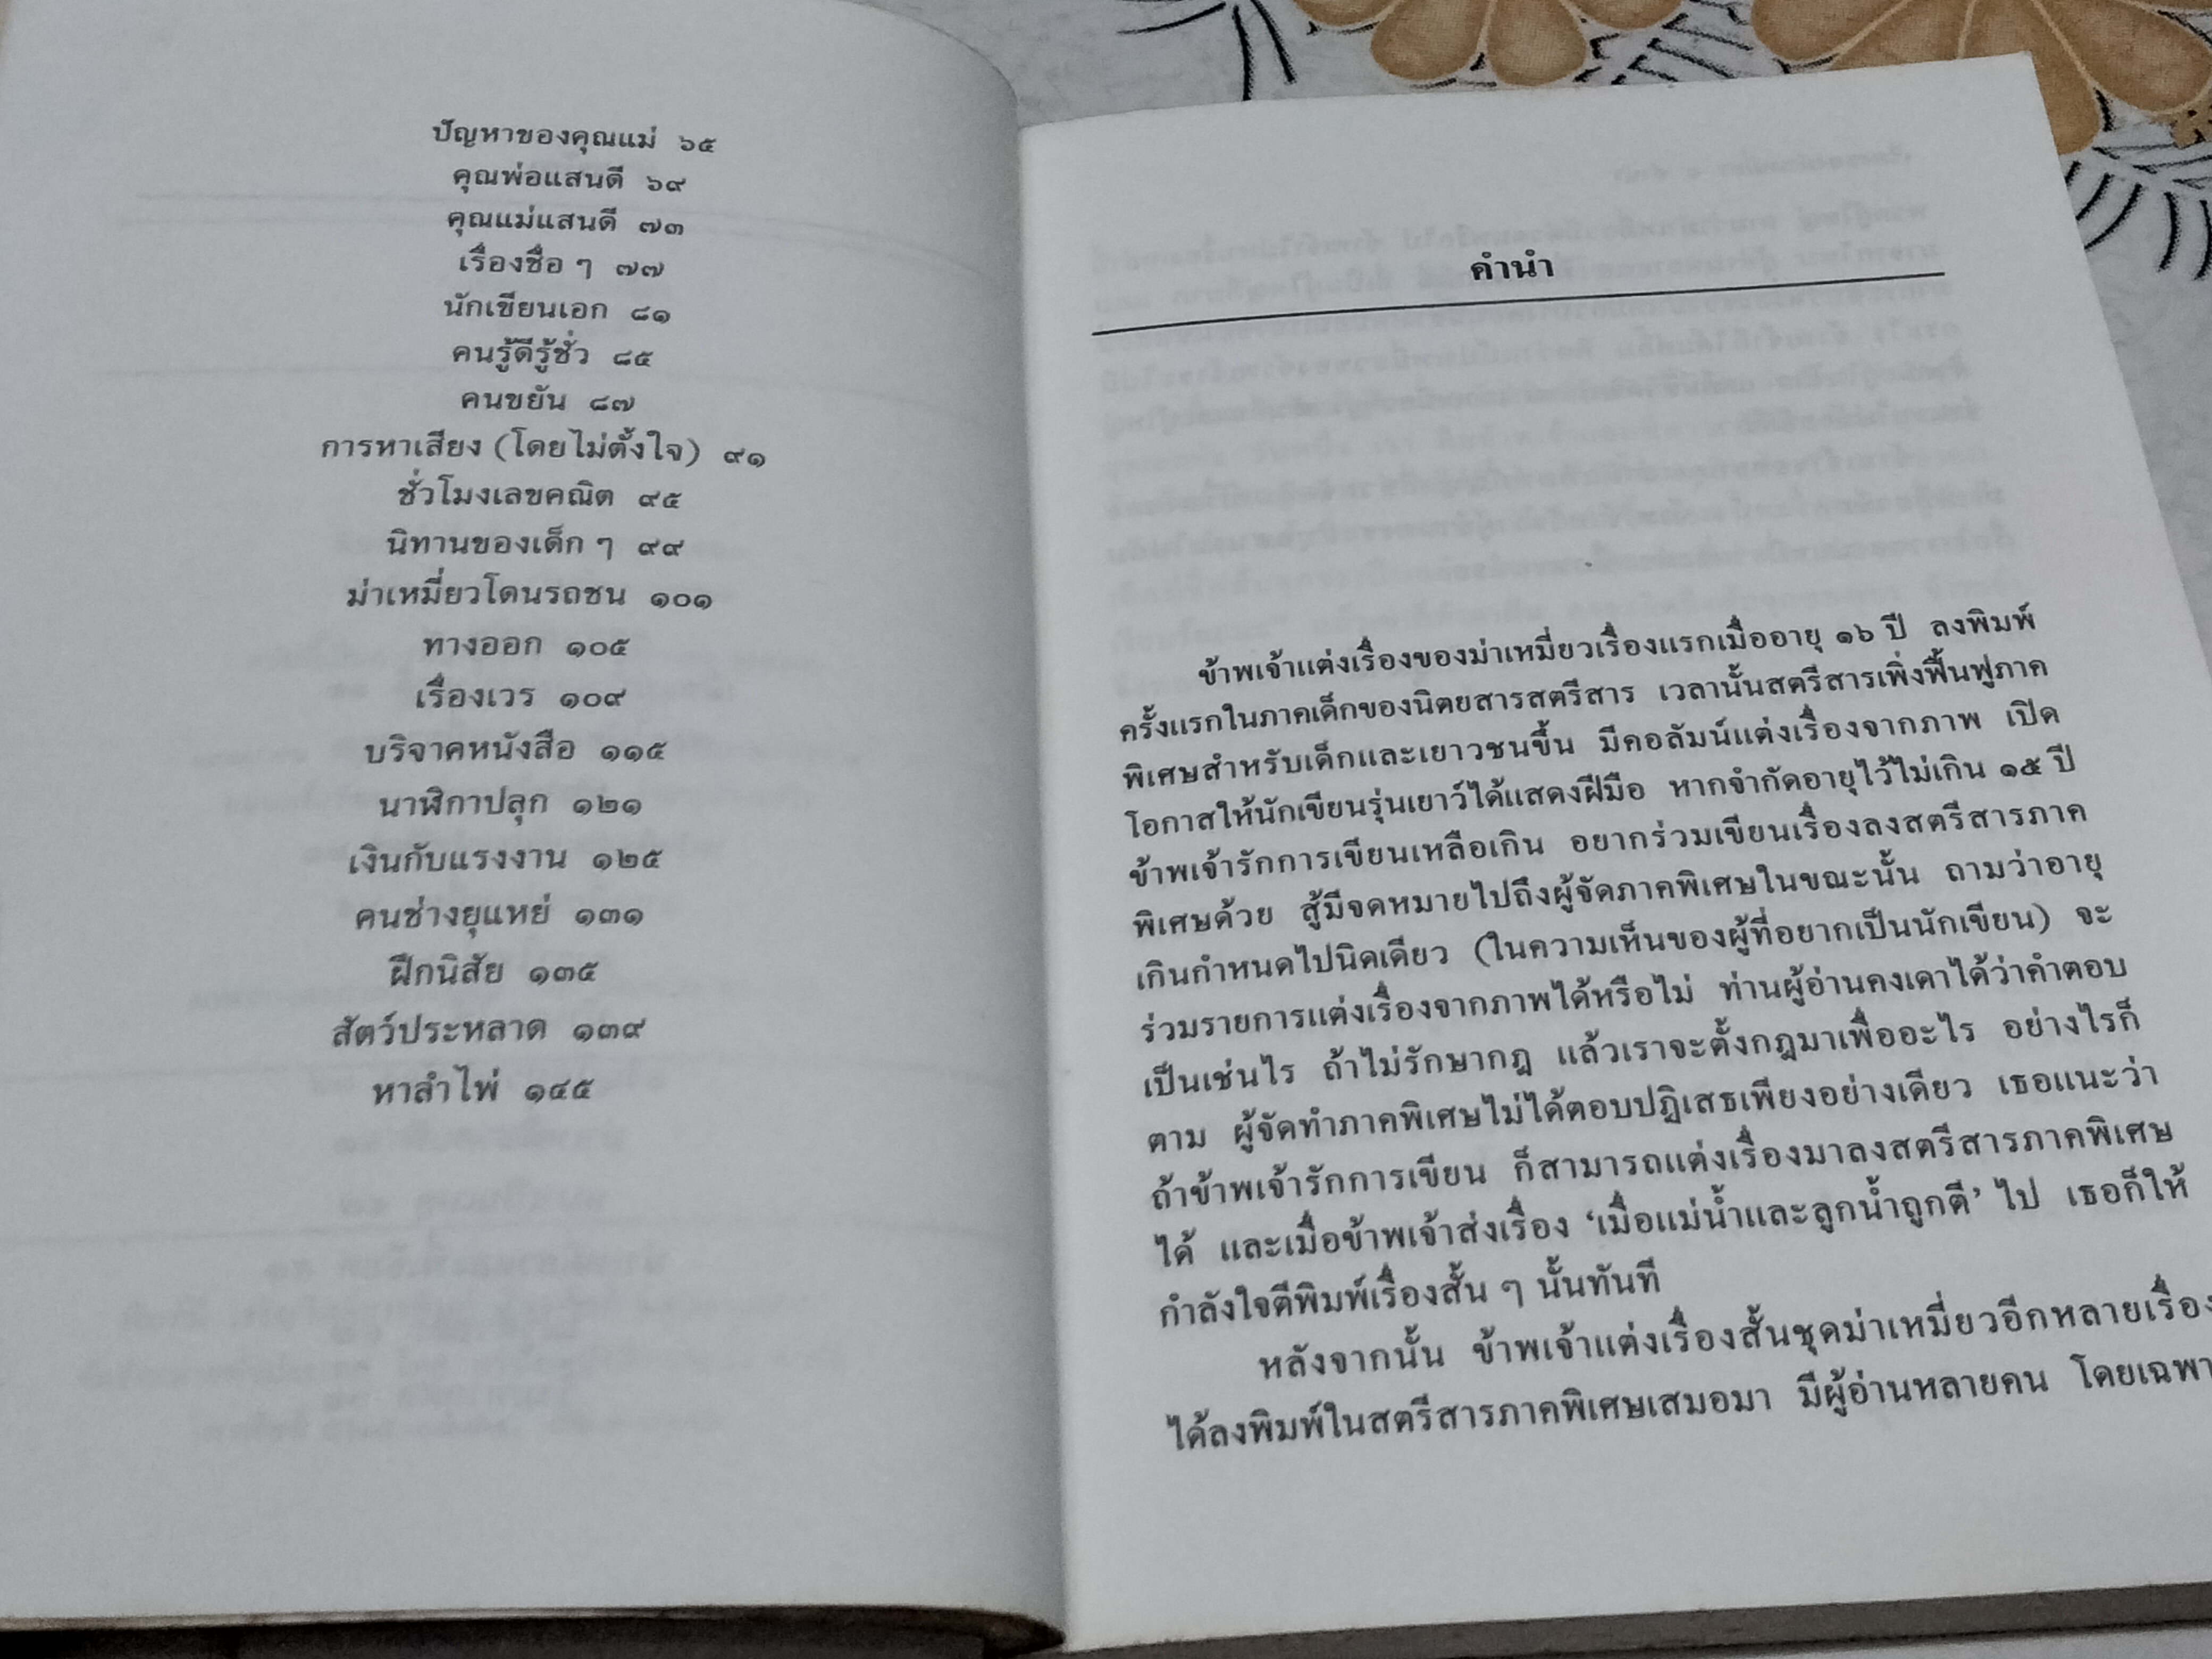 ปัญหาของคุณแม่ ๖๕
คุณพ่อแสนดี ๖๙
คุณแม่แสนดี ๗๓
เรื่องชื่อ ๆ ๗๗
นักเขียนเอก ๘๑
คนรู้ดีรู้ชั่ว ๘๕
คนขยัน ๘๗
การหาเสียง (โดยไม่ตั้งใจ) ๙๑
ชั่วโมงเลขคณิต ๙๕
นิทานของเด็ก ๆ ๙๙
ม่าเหมี่ยวโดนรถชน ๑๐๑
ทางออก ๑๐๕
เรื่องเวร ๑๐๙
บริจาคหนังสือ ๑๑๕
นาฬิกาปลุก ๑๒๑
เงินกับแรงงาน ๑๒๕
คนช่างยุแหย่ ๑๓๑
ฝึกนิสัย ๑๓๕
สัตว์ประหลาด ๑๓๙
หาลำไพ่ ๑๔๕
คำนำ
ข้าพเจ้าแต่งเรื่องของม่าเหมี่ยวเรื่องแรกเมื่ออายุ ๑๖ ปี ลงพิมพ์
ครั้งแรกในภาคเด็กของนิตยสารสตรีสาร เวลานั้นสตรีสารเพิ่งฟื้นฟูภาค
พิเศษสำหรับเด็กและเยาวชนขึ้น มีคอลัมน์แต่งเรื่องจากภาพ เปิด
โอกาสให้นักเขียนรุ่นเยาว์ได้แสดงฝีมือ หากจำกัดอายุไว้ไม่เกิน ๑๕ ปี
ข้าพเจ้ารักการเขียนเหลือเกิน อยากร่วมเขียนเรื่องลงสตรีสารภาค
พิเศษด้วย สู้มีจดหมายไปถึงผู้จัดภาคพิเศษในขณะนั้น ถามว่าอายุ
เกินกำหนดไปนิดเดียว (ในความเห็นของผู้ที่อยากเป็นนักเขียน) จะ
ร่วมรายการแต่งเรื่องจากภาพได้หรือไม่ ท่านผู้อ่านคงเดาได้ว่าคำตอบ
เป็นเช่นไร ถ้าไม่รักษากฎ แล้วเราจะตั้งกฎมาเพื่ออะไร อย่างไรก็
ตาม ผู้จัดทำภาคพิเศษไม่ได้ตอบปฏิเสธเพียงอย่างเดียว เธอแนะว่า
ถ้าข้าพเจ้ารักการเขียน ก็สามารถแต่งเรื่องมาลงสตรีสารภาคพิเศษ
ได้ และเมื่อข้าพเจ้าส่งเรื่อง ‘เมื่อแม่น้ำและลูกน้ำถูกตี’ ไป เธอก็ให้
กำลังใจตีพิมพ์เรื่องสั้น ๆ นั้นทันที
หลังจากนั้น ข้าพเจ้าแต่งเรื่องสั้นชุดม่าเหมี่ยวอีกหลายเรื่อง
ได้ลงพิมพ์ในสตรีสารภาคพิเศษเสมอมา มีผู้อ่านหลายคน โดยเฉพา